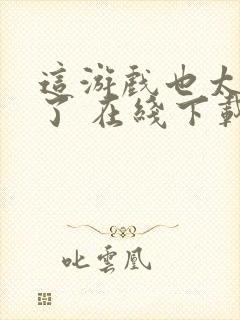 這游戲也太
了 在綫下載
叱雲凰